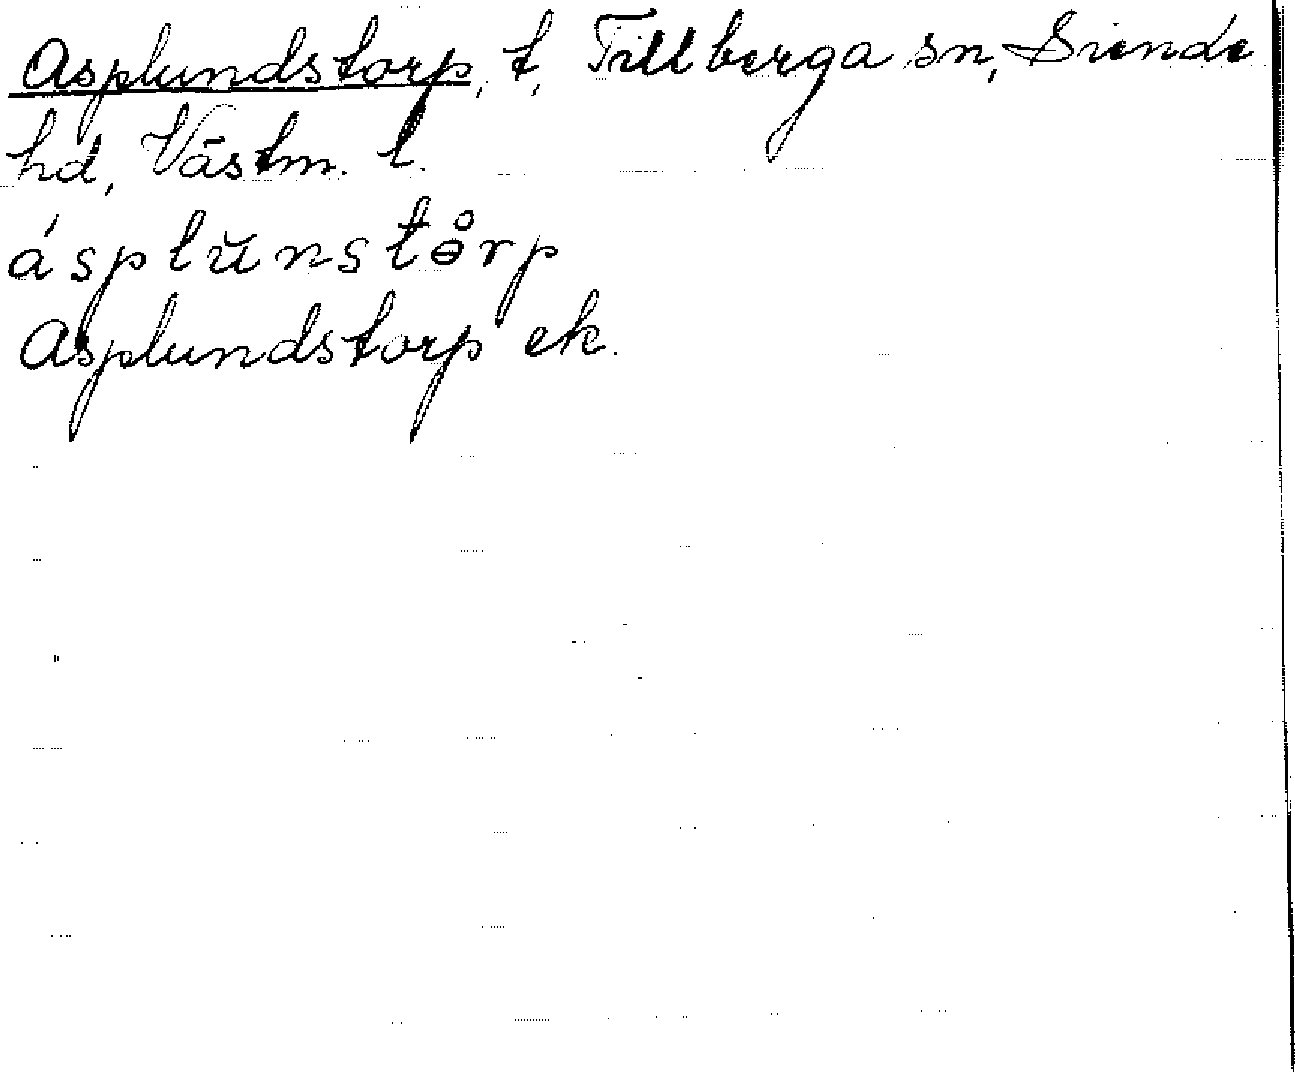 Asplundstorp, t, Tillberga sn, Siende
hd, Västm. l.
ásplŭnstɵ̊rp
Asplundstorp ek.